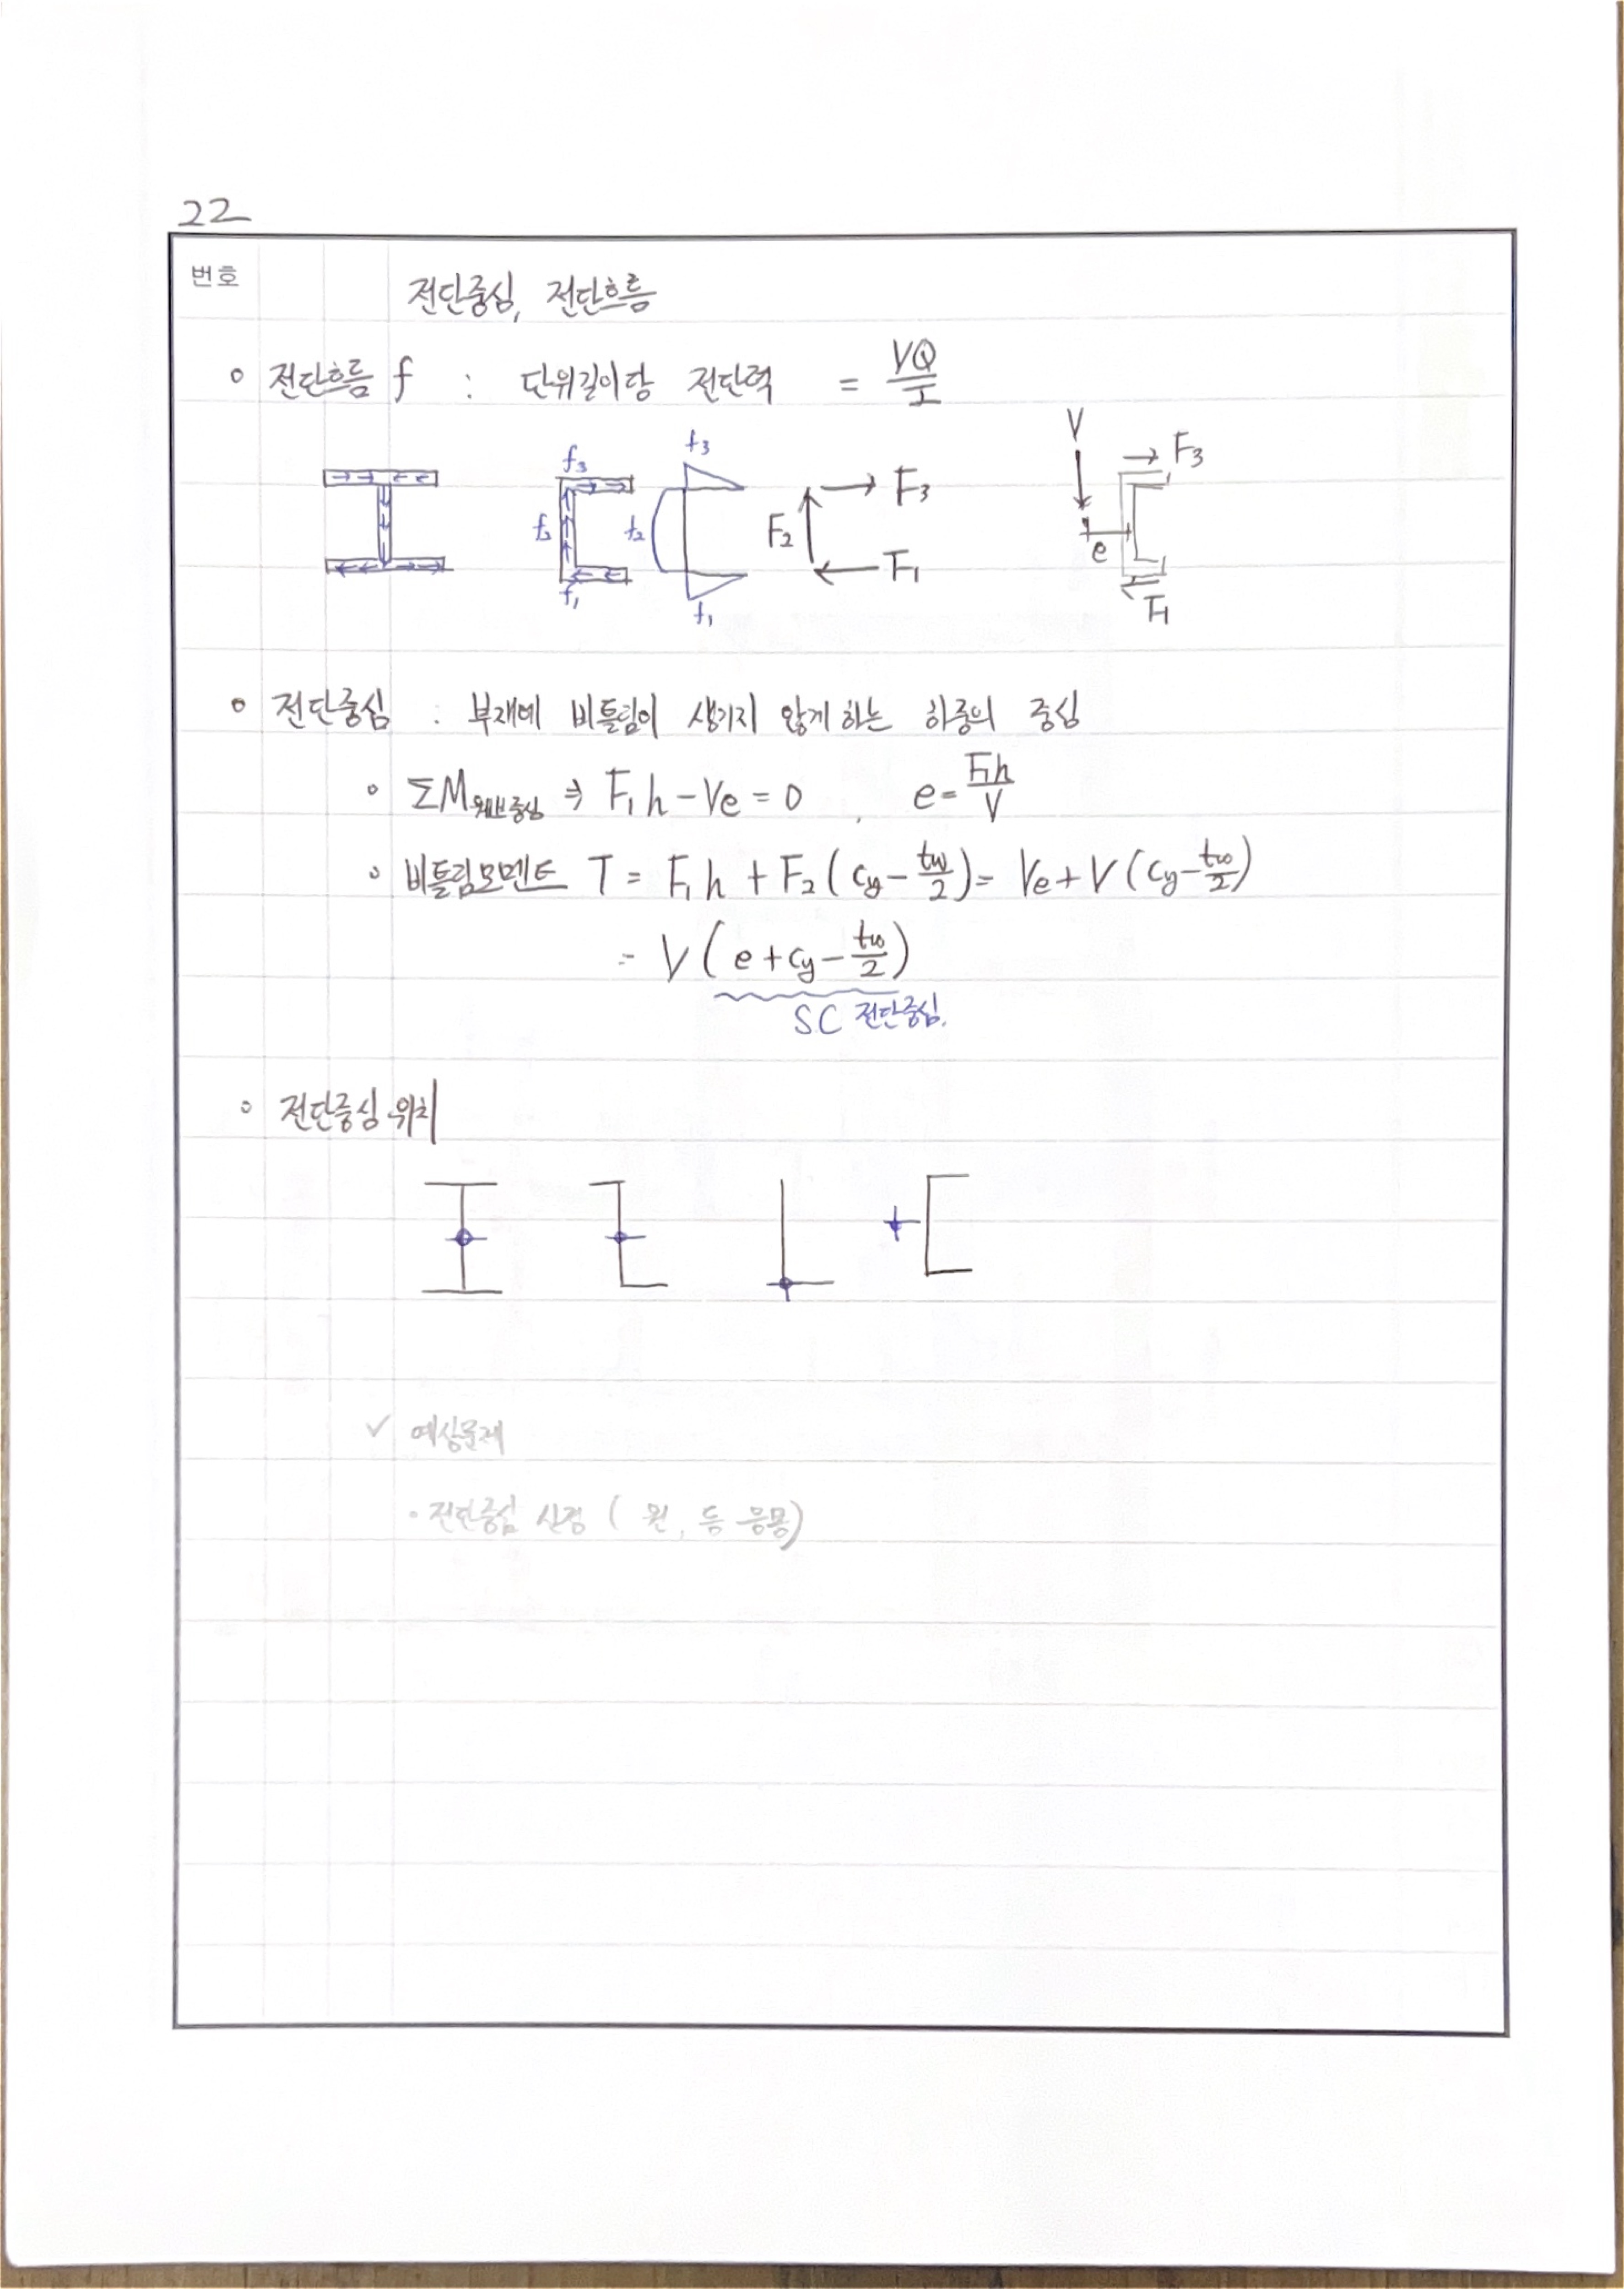 22
번호
전단중심, 전단흐름
○ 전단흐름 f : 단위길이당 전단력 = VQ/I
f3 f3 V F3
f2 f2 F2 F3 e
f1 f1 F1 F1
○ 전단중심 : 부재에 비틀림이 생기지 않게하는 하중의 중심
○ ΣM웨브중심 ⇒ F1h - Ve = 0 , e = F1h/V
○ 비틀림모멘트 T = F1h + F2(cy - tw/2) = Ve + V(cy - tw/2)
= V(e + cy - tw/2)
SC 전단중심.
○ 전단중심 위치
✓ 예상문제
• 전단중심 산정 ( 원, 등 응용)